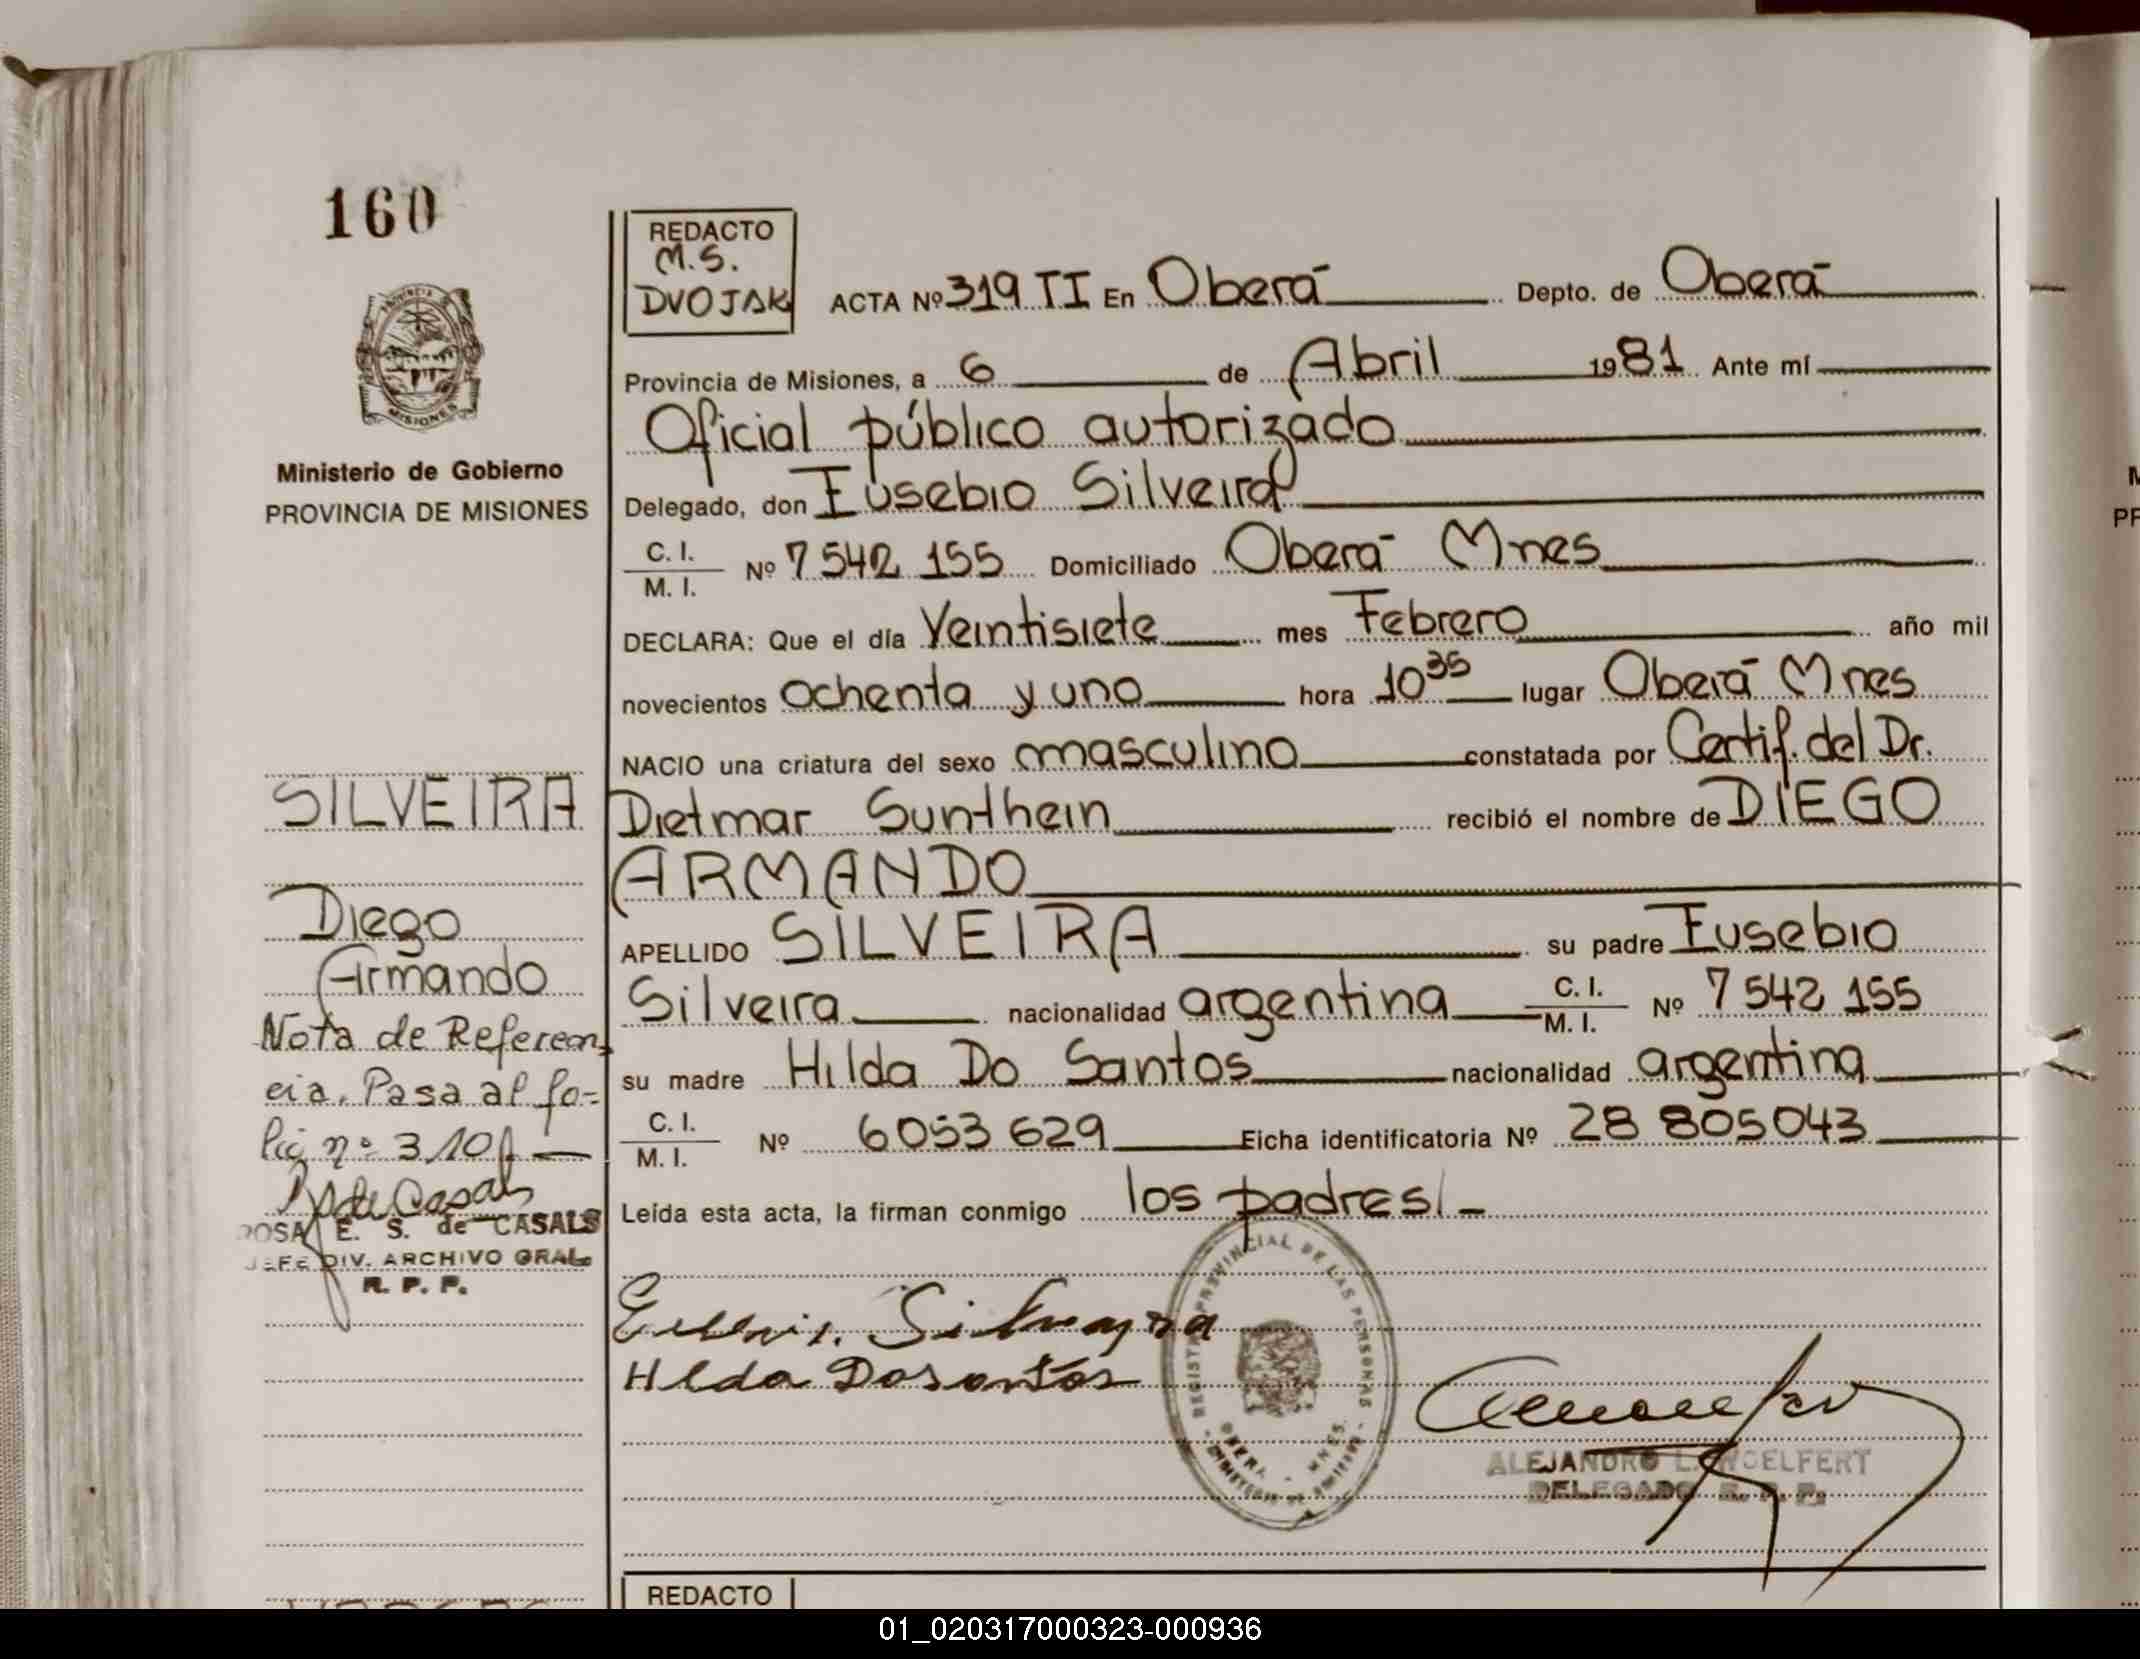 160
PROVINCIA
MISIONES
Ministerio de Gobierno
PROVINCIA DE MISIONES
SILVEIRA
Diego
Armando
Nota de Referen-
cia. Pasa al fo-
lio nº 310
ROSA E. S. de CASALS
JEFE DIV. ARCHIVO GRAL.
R. P. P.
REDACTO
M.S.
DVOJAK
ACTA Nº 319 TI En Oberá Depto. de Oberá
Provincia de Misiones, a 6 de Abril 1981 Ante mí
Oficial público autorizado
Delegado, don Eusebio Silveira
C. I. / M. I. Nº 7 542 155 Domiciliado Oberá Mnes
DECLARA: Que el día Veintisiete mes Febrero año mil
novecientos ochenta y uno hora 10 35 lugar Oberá Mnes
NACIO una criatura del sexo masculino constatada por Certif. del Dr.
Dietmar Sunthein recibió el nombre de DIEGO
ARMANDO
APELLIDO SILVEIRA su padre Eusebio
Silveira nacionalidad argentina C. I. / M. I. Nº 7 542 155
su madre Hilda Do Santos nacionalidad argentina
C. I. / M. I. Nº 6 053 629 Ficha identificatoria Nº 28 805043
Leída esta acta, la firman conmigo los padres -
Hlda Dosantos
REGISTRO PROVINCIAL DE LAS PERSONAS
OBERA - MNES.
ALEJANDRO L. WOELFERT
DELEGADO R. P. P.
REDACTO
01_020317000323-000936